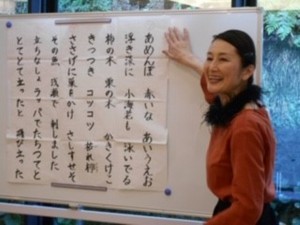 あめんぼ 赤いな あいうえお
浮き藻に 小海老も 泳いでる
柿の木 栗の木 かきくけこ
きっつき コツコツ 枯れ欅
ささげに 酢をかけ さしすせそ
その魚 浅瀬で 刺しました
立ちましょ ラッパで たちつてと
とてとて 立ったと 飛び立った